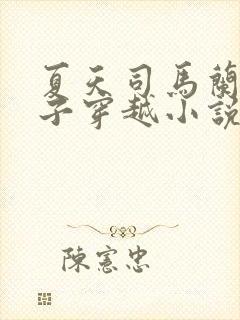 夏天司馬蘭
子穿越小說
陳憲忠